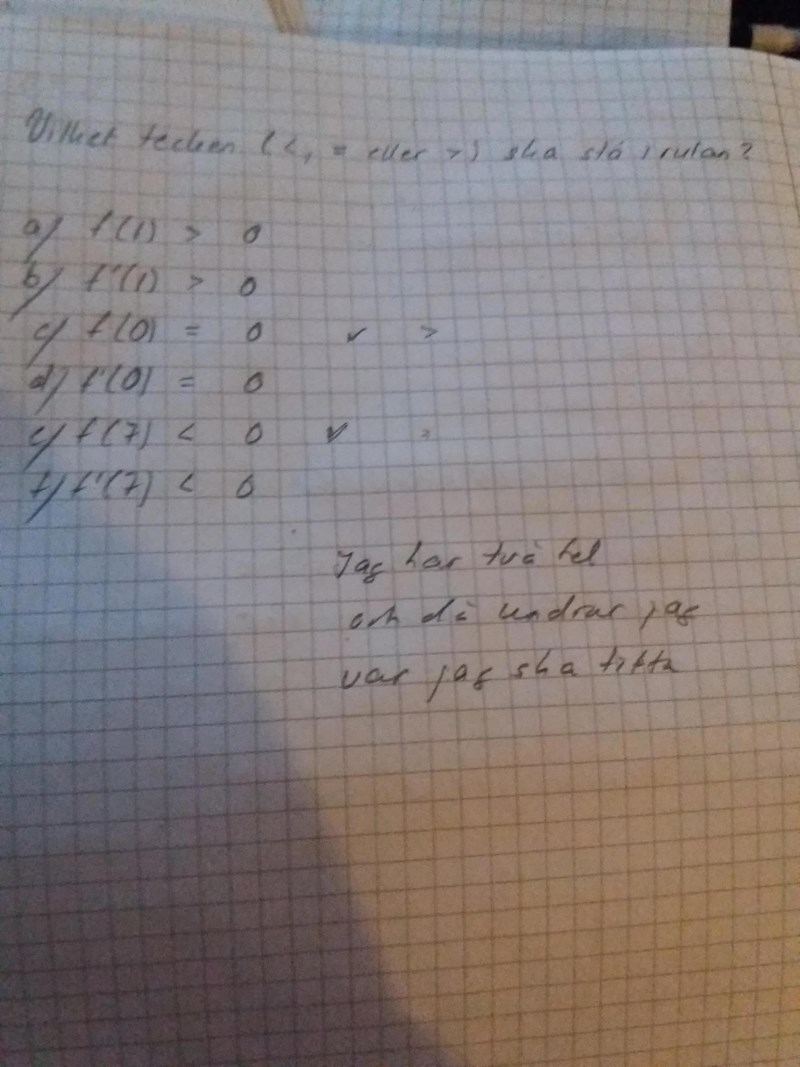 Vilket tecken (<, = eller >) ska stå i rutan?
a) f(1) > 0
b) f'(1) > 0
c) f(0) = 0 ✓ >
d) f'(0) = 0
e) f(7) < 0 ✓ >
f) f'(7) < 0
Jag har två fel
och då undrar jag
var jag ska titta